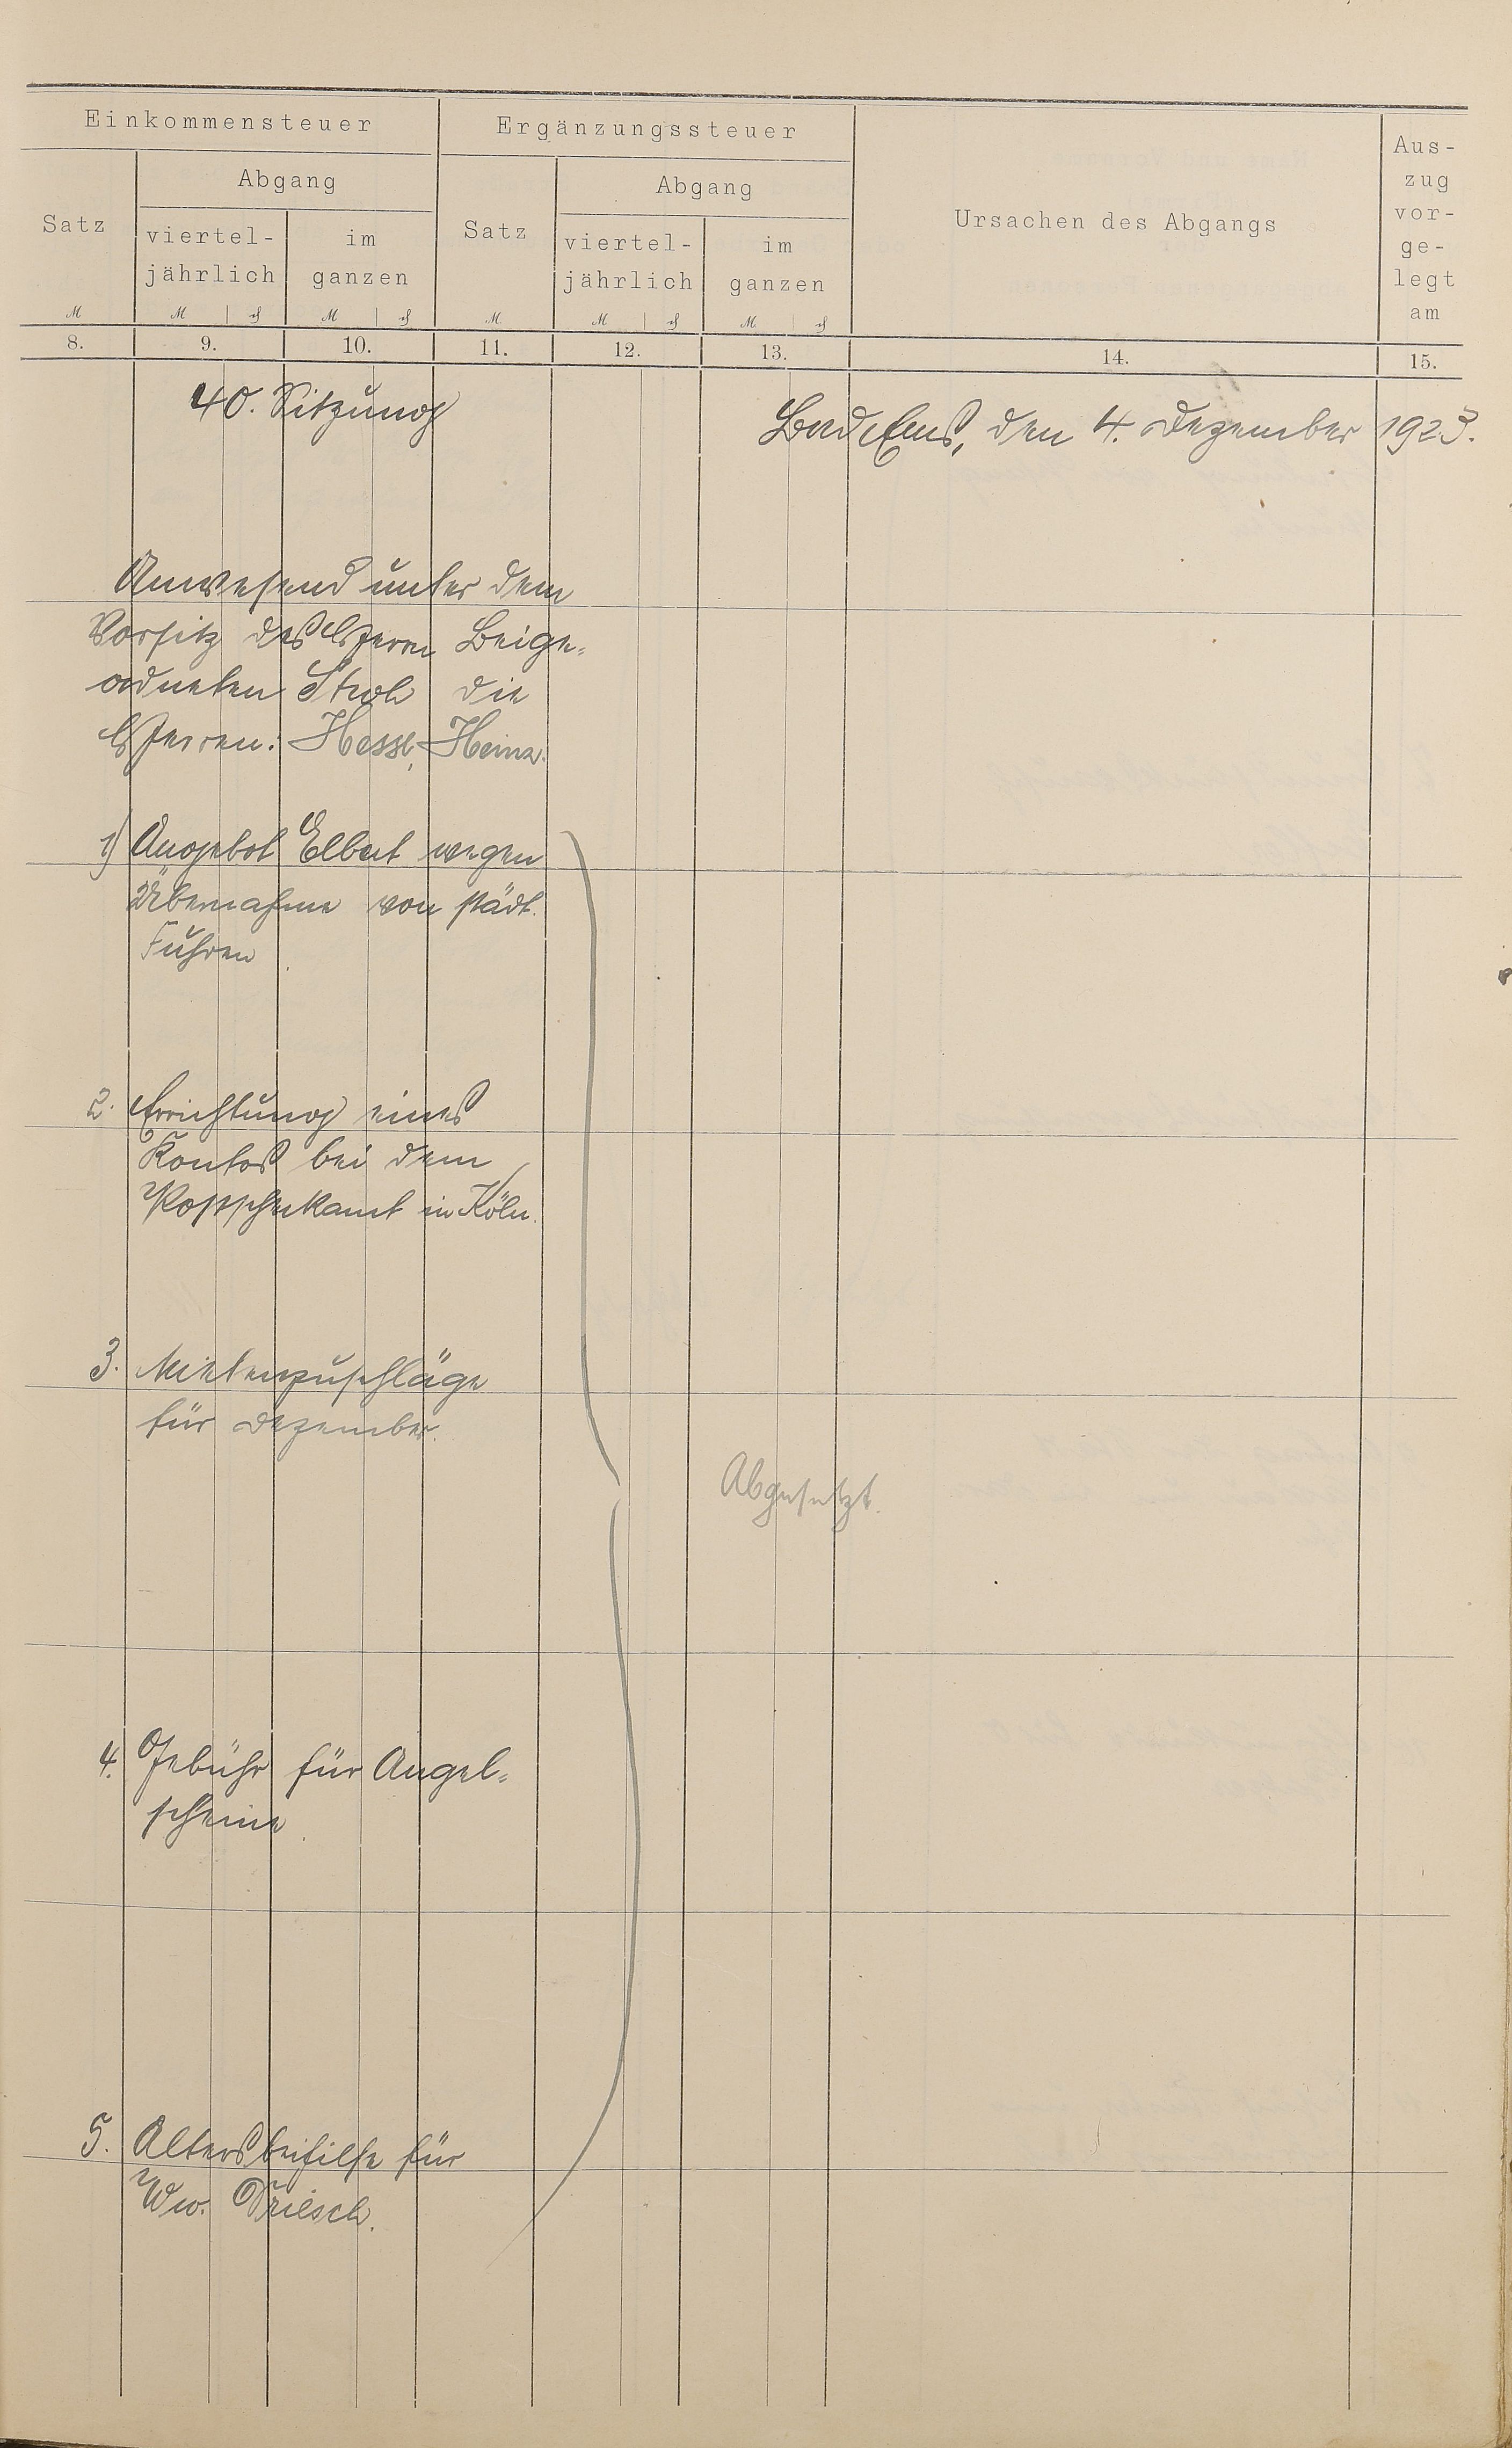 Einkommensteuer
Ergänzungssteuer
Ursachen des Abgangs
Aus-
zug
vor-
ge-
legt
am
Satz
Abgang
viertel-
jährlich
im
ganzen
Satz
Abgang
viertel-
jährlich
im
ganzen
M M ₰ M ₰ M M ₰ M ₰
8. 9. 10. 11. 12. 13. 14. 15.
40. Sitzung
Bad Ems, den 4. Dezember 1923.
Anwesend unter dem
Vorsitz des Herrn Beige-
ordneten Stroh die
Herren: Hesse, Heinz.
1) Angebot Elbert wegen
Übernahme von städt.
Fuhren.
2. Errichtung eines
Kontos bei dem
Postscheckamt in Köln.
3. Mietenzuschläge
für Dezember.
Abgesetzt.
4. Gebühr für Angel-
scheine.
5. Altersbeihilfe für
Ww. Driesch.